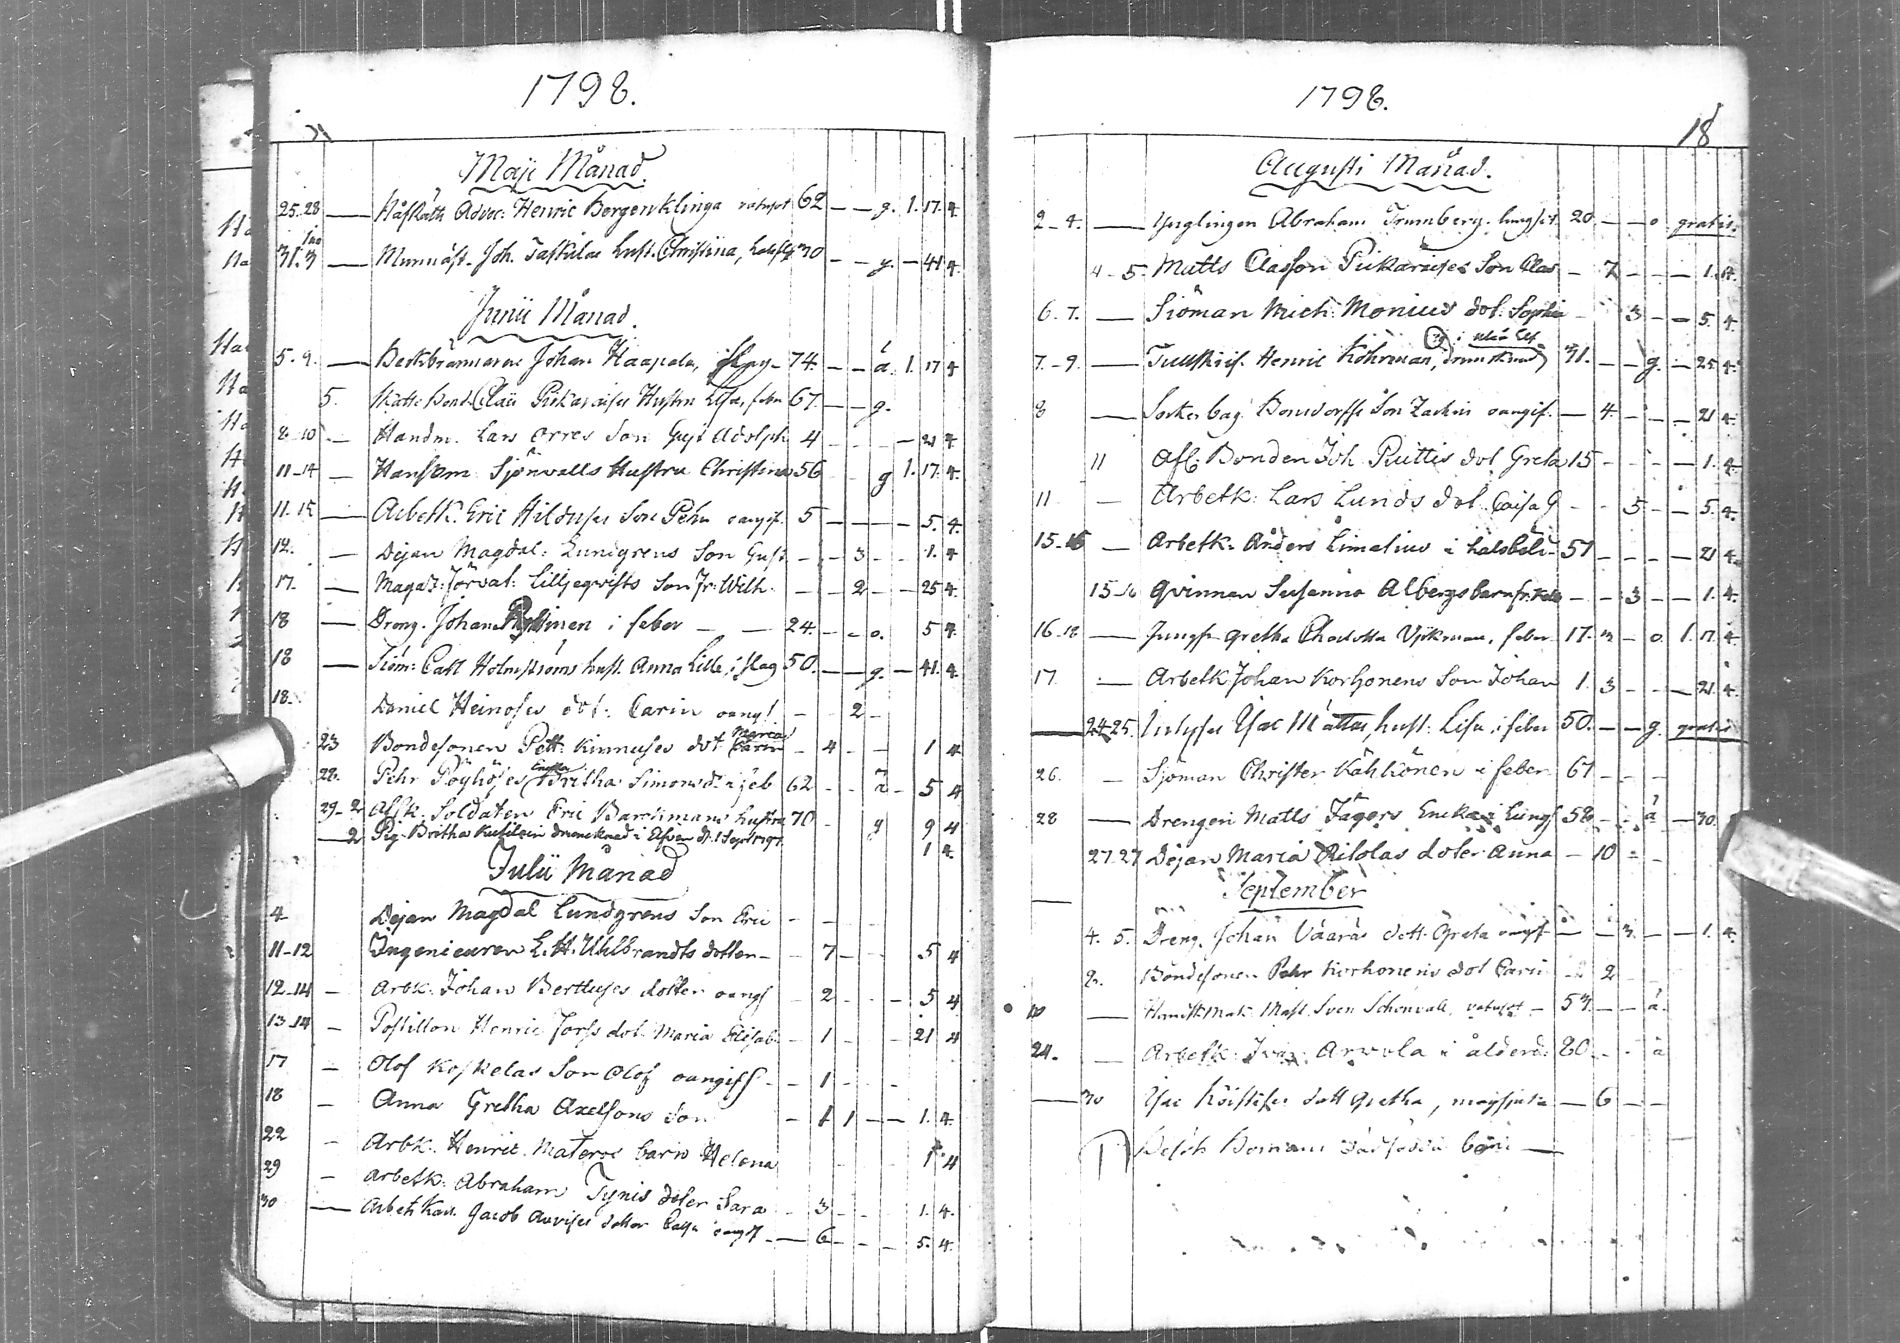 1798.
Maji Månad.
25.28 — Håfrätts Advoc: Henric Bergenklinga vatusot 62 — — g. 1. 17. 4.
31. 3 — Joh. Taskilas hust. Christina, 30 — — g. — 41 4.
Junii Månad.
5. 9. — Beckbrännaren Johan Haapala, slag 74. — — á. 1. 17 4
5. Hustru Lisa, feber 67. — — g.
8-10 — Handm. Lars Orres Son Gust Adolph 4 — — — — 21 4.
11-14 — Sjönvalls Hustru Christina 56 g 1. 17. 4.
11. 15 — Arbetk. Eric Hilduses Son Pehr oangif. 5 — — — — 5. 4.
12. — Dejan Magdal: Lundgrens Son Gust. — — 3 — — 1. 4
17. — Magaz: förvat: Lilljeqvists Son Fr: Wilh. — — 2 — — 25 4.
18 — Dreng. Johan i feber — — 24. — — o. 5 4.
18 — Sjöm: Carl Holmströms hust. Anna Lisa, i slag 50. — — g. — 41. 4.
18. Daniel Heinoses dot: Carin oangf. — — 2 —
23 Bondesonen Pett. Kinnuses dot Maria Carin — 4 — — 1 4
28. Pehr Pöyhöses Enka Britha Simonsd. i feb 62 — — á — 5 4
29-2 Afsk. Soldaten Eric Barckmans hustru 70 — g 9 4
— 2 Pig. Britha drunknad i Elfven d. 1 Sept 1797. 1 4.
Julii Månad
4 Dejan Magdal Lundgrens Son Eric — —
11-12 Ingenieuren E. H. Uhlbrandts dotter — — 7 — — 5 4
12-14 — Arbk. Johan Bertluses dotter oangf — 2 — — — 5 4
13-14 — Postillon Henric Forss dot. Maria Elisab. — 1 — — 21 4
17 — Olof Koskelas Son Olof oangiff — — 1 — — —
18 — Anna Gretha Axelsons Son — 1 1 — — 1. 4.
22 — Arbk. Henric Materos barn Helena 1. 4
29 — Arbetk. Abraham Tynis doter Sara — 3 — — 1. 4.
30 — Arbets Karl Jacob Auvises dotter Caisa oangf — — 6 — — — 5. 4.
1798.
18
Augusti Månad.
2-4. — Ynglingen Abraham Trumberg. lungsot. 20. — — o gratis.
4-5. Matts Classon Pikaraises Son Clas — 7 — — — 1. 4.
6. 7. — Siöman Mich: Monius dot. Sophia — 3 — — 5. 4.
i Uleå Elf.
7-9. — Henric Köhrman, drunknad 31. — — g. — 25 4.
8 — Bonsdorffs Son Zachris oangif. — 4. — — — 21 4
11 Afl. Bonden Joh Puttis dot Greta 15 — — — — 1. 4.
11 — Arbetk: Lars Lunds dot. Caisa G — — 5 — — 5. 4.
15-16 — Arbetk. Anders Limatius i halsböld 51 — — — — 21 4.
15-16 Qvinnan Susanna Albergs barn — — 3 — — 1. 4.
16-18 — Jungfr Gretha Charlotta Vikman, feber 17. — — o. 1. 17. 4.
17 — Arbetk Johan Korhonens Son Johan 1. 3 — — — 21. 4.
— 24-25. Isac Mattas hust. Lisa i feber 50. — — g. gratis
26. — Sjöman Christer Kähkönen i feber 61 — — —
28 — Drengen Matts Jägers Enka i Lungs 58 — — á — 30.
27.27 Dejan Maria Ritolas doter Anna — 10 — —
September
4. 5. Dreng. Johan Vaaras dott. Greta oangf — — 3. — — 1. 4.
2. Bondesonen Pehr Korhonens dot Carin — 2 2
10 — Mast. Sven Schönvall, vatusot — 57. — — á.
24. — Arbetk. Ivar Arvola i ålderd. 80 — — á
— 30 Isac Köistises dott Gretha, — 6 — —